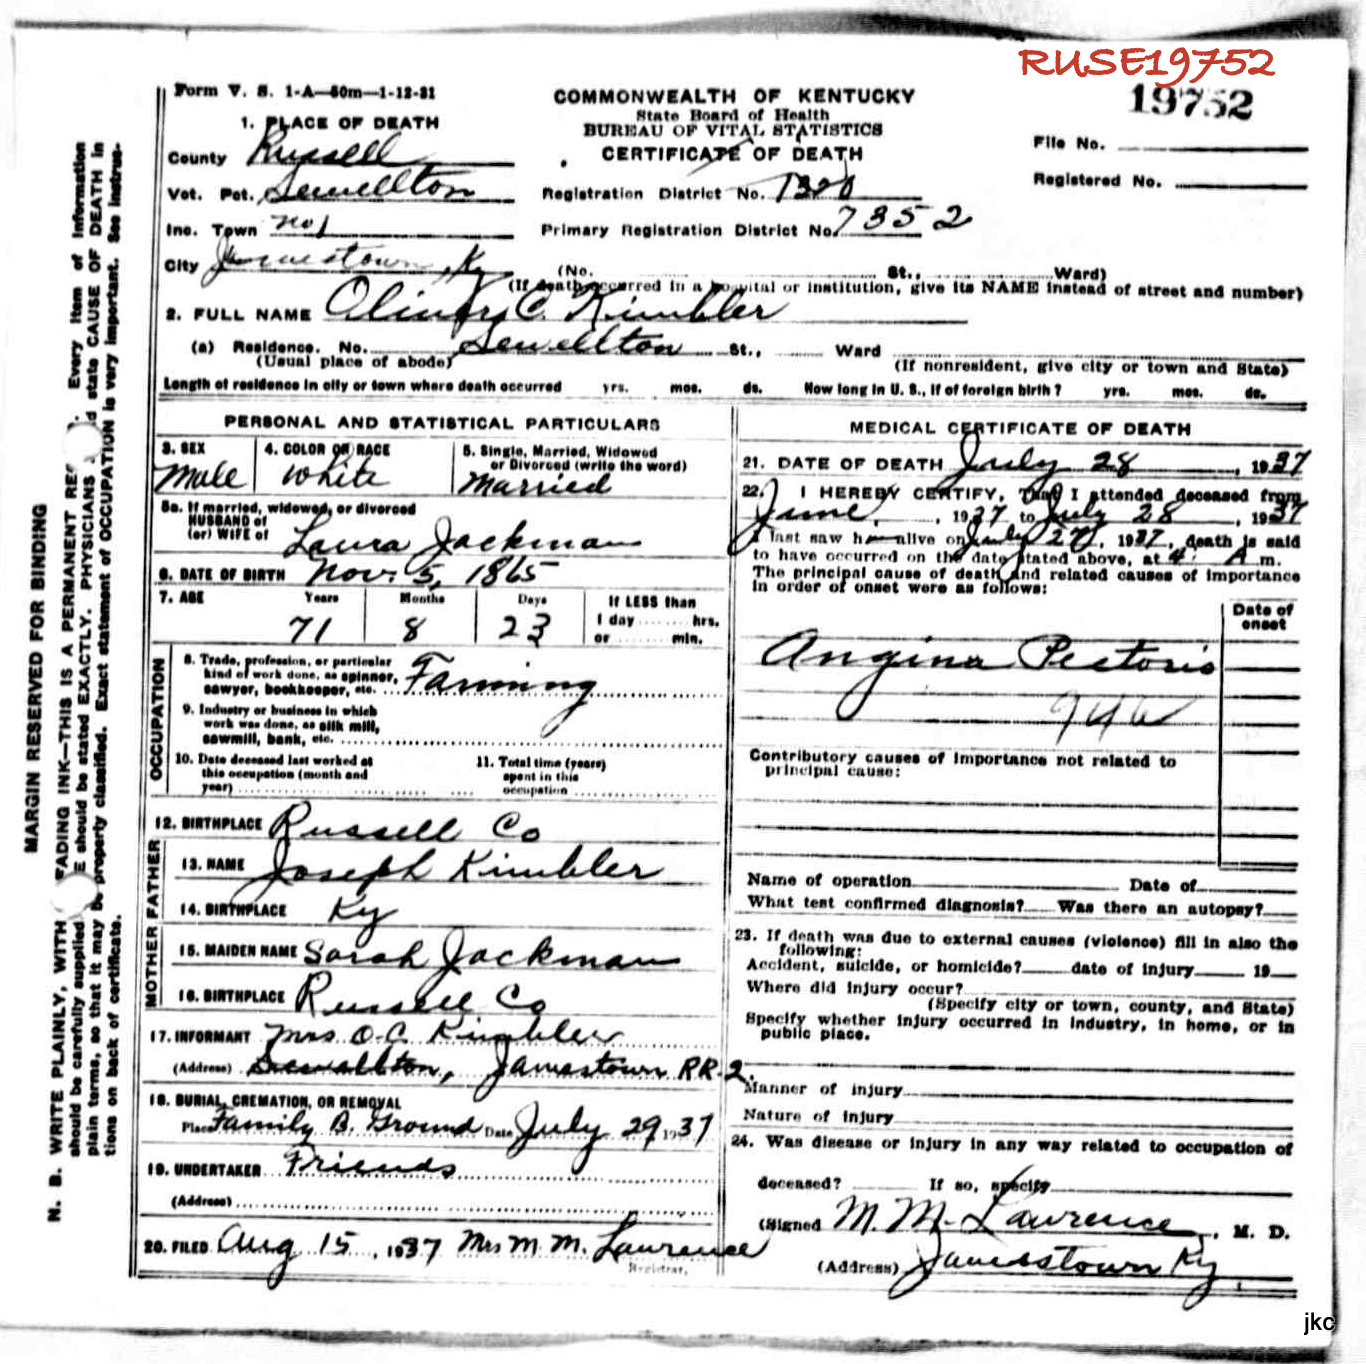 RUSE19752
Form V. S. 1-A—50m—1-12-31
19752
COMMONWEALTH OF KENTUCKY
State Board of Health
BUREAU OF VITAL STATISTICS
CERTIFICATE OF DEATH
File No.
Registered No.
1. PLACE OF DEATH
County Russell
Vot. Pct. Sewellton
Inc. Town no 1
City Jamestown, Ky
Registration District No. 1320
Primary Registration District No. 7352
(No. St., Ward)
(If death occurred in a hospital or institution, give its NAME instead of street and number)
2. FULL NAME Oliver C. Kimbler
(a) Residence. No. Sewellton St., Ward
(Usual place of abode) (If nonresident, give city or town and State)
Length of residence in city or town where death occurred yrs. mos. ds. How long in U. S., if of foreign birth? yrs. mos. ds.
PERSONAL AND STATISTICAL PARTICULARS
3. SEX
Male
4. COLOR OR RACE
White
5. Single, Married, Widowed
or Divorced (write the word)
Married
5a. If married, widowed, or divorced
HUSBAND of
(or) WIFE of Laura Jackman
6. DATE OF BIRTH Nov. 5, 1865
7. AGE Years Months Days If LESS than
1 day hrs.
or min.
71 8 23
OCCUPATION
8. Trade, profession, or particular
kind of work done, as spinner,
sawyer, bookkeeper, etc. Farming
9. Industry or business in which
work was done, as silk mill,
sawmill, bank, etc.
10. Date deceased last worked at
this occupation (month and
year)
11. Total time (years)
spent in this
occupation
12. BIRTHPLACE Russell Co
FATHER
13. NAME Joseph Kimbler
14. BIRTHPLACE Ky
MOTHER
15. MAIDEN NAME Sarah Jackman
16. BIRTHPLACE Russell Co
17. INFORMANT Mrs O.C. Kimbler
(Address) Sewellton, Jamestown RR. 2
18. BURIAL, CREMATION, OR REMOVAL
Place Family B. Ground Date July 29 1937
19. UNDERTAKER Friends
(Address)
20. FILED Aug 15, 1937 Mrs M. M. Lawrence
Registrar.
MEDICAL CERTIFICATE OF DEATH
21. DATE OF DEATH July 28, 1937
22. I HEREBY CERTIFY, That I attended deceased from
June, 1937 to July 28, 1937
I last saw h alive on July 27, 1937, death is said
to have occurred on the date stated above, at 4: A m.
The principal cause of death and related causes of importance
in order of onset were as follows:
Date of
onset
Angina Pectoris
94b
Contributory causes of importance not related to
principal cause:
Name of operation Date of
What test confirmed diagnosis? Was there an autopsy?
23. If death was due to external causes (violence) fill in also the
following:
Accident, suicide, or homicide? date of injury 19
Where did injury occur?
(Specify city or town, county, and State)
Specify whether injury occurred in industry, in home, or in
public place.
Manner of injury
Nature of injury
24. Was disease or injury in any way related to occupation of
deceased? If so, specify
(Signed M. M. Lawrence, M. D.
(Address) Jamestown Ky.
MARGIN RESERVED FOR BINDING
N. B. WRITE PLAINLY, WITH FADING INK—THIS IS A PERMANENT RE Every item of information
should be carefully supplied E should be stated EXACTLY. PHYSICIANS d state CAUSE OF DEATH in
plain terms, so that it may be properly classified. Exact statement of OCCUPATION is very important. See instruc-
tions on back of certificate.
jkc